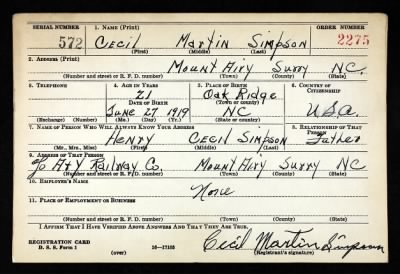 SERIAL NUMBER 1. NAME (Print) ORDER NUMBER
572 Cecil Martin Simpson 2275
(First) (Middle) (Last)
2. ADDRESS (Print)
Mount Airy Surry NC.
(Number and street or R. F. D. number) (Town) (County) (State)
3. TELEPHONE 4. AGE IN YEARS 5. PLACE OF BIRTH 6. COUNTRY OF CITIZENSHIP
21 Oak Ridge
DATE OF BIRTH (Town or county)
June 27 1919 NC U.S.A.
(Exchange) (Number) (Mo.) (Day) (Yr.) (State or country)
7. NAME OF PERSON WHO WILL ALWAYS KNOW YOUR ADDRESS 8. RELATIONSHIP OF THAT PERSON
Henry Cecil Simpson Father
(Mr., Mrs., Miss) (First) (Middle) (Last)
9. ADDRESS OF THAT PERSON
c/o A+Y Railway Co. Mount Airy Surry NC
(Number and street or R. F. D. number) (Town) (County) (State)
10. EMPLOYER'S NAME
None
11. PLACE OF EMPLOYMENT OR BUSINESS
(Number and street or R. F. D. number) (Town) (County) (State)
I AFFIRM THAT I HAVE VERIFIED ABOVE ANSWERS AND THAT THEY ARE TRUE.
REGISTRATION CARD
D. S. S. Form 1 16—17105 Cecil Martin Simpson
(over) (Registrant's signature)